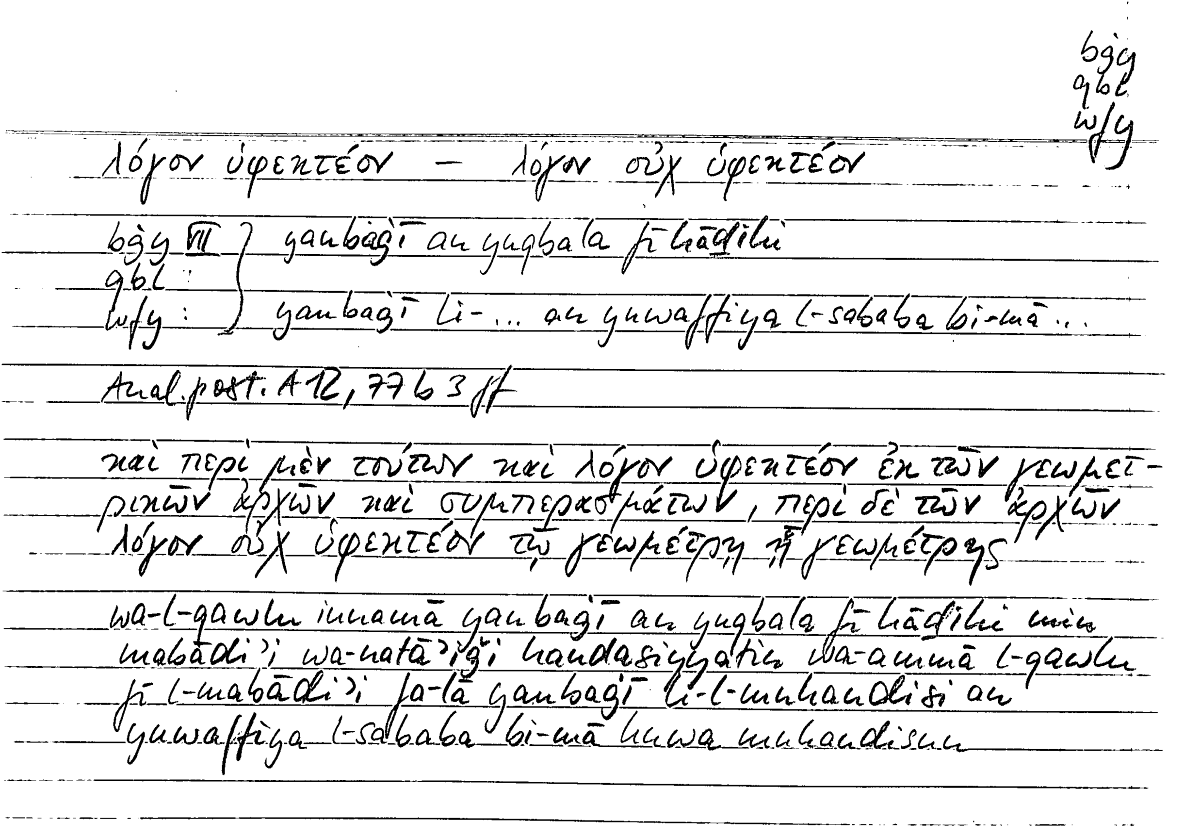 bġy
qbl
wfy
λόγον ὑφεκτέον — λόγον οὐχ ὑφεκτέον
bġy VII } yanbaġī an yuqbala fī hāḏihi
qbl :
wfy : yanbaġī li-... an yuwaffiya l-sababa bi-mā ...
Anal. post. A 12, 77 b 3 ff
καὶ περὶ μὲν τούτων καὶ λόγον ὑφεκτέον ἐκ τῶν γεωμετ-
ρικῶν ἀρχῶν καὶ συμπερασμάτων, περὶ δὲ τῶν ἀρχῶν
λόγον οὐχ ὑφεκτέον τῷ γεωμέτρῃ ᾗ γεωμέτρης
wa-l-qawlu innamā yanbaġī an yuqbala fī hāḏihi min
mabādiʾi wa-natāʾiǧi handasiyyatin wa-ammā l-qawlu
fī l-mabādiʾi fa-lā yanbaġī li-l-muhandisi an
yuwaffiya l-sababa bi-mā huwa muhandisun